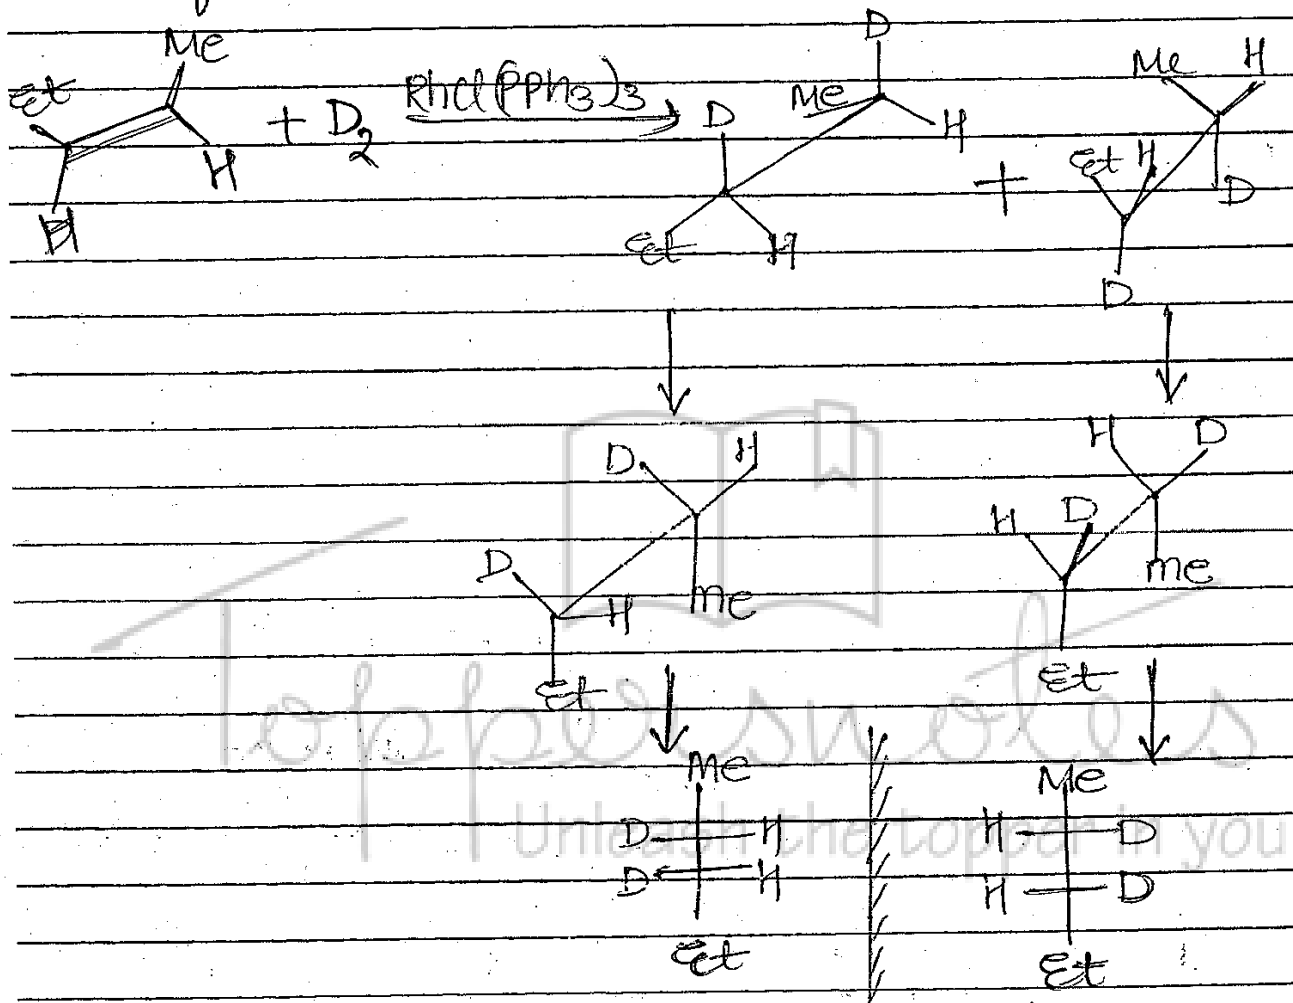 Me
Et
H
H
+ D2
RhCl(PPh3)3
D
D
Me
H
Et
H
+
Me
H
Et H
D
D
D H
D
H
Me
Et
H D
H D
Me
Et
Me
D H
D H
Et
Me
H D
H D
Et
Toppersnotes
Unleash the topper in you